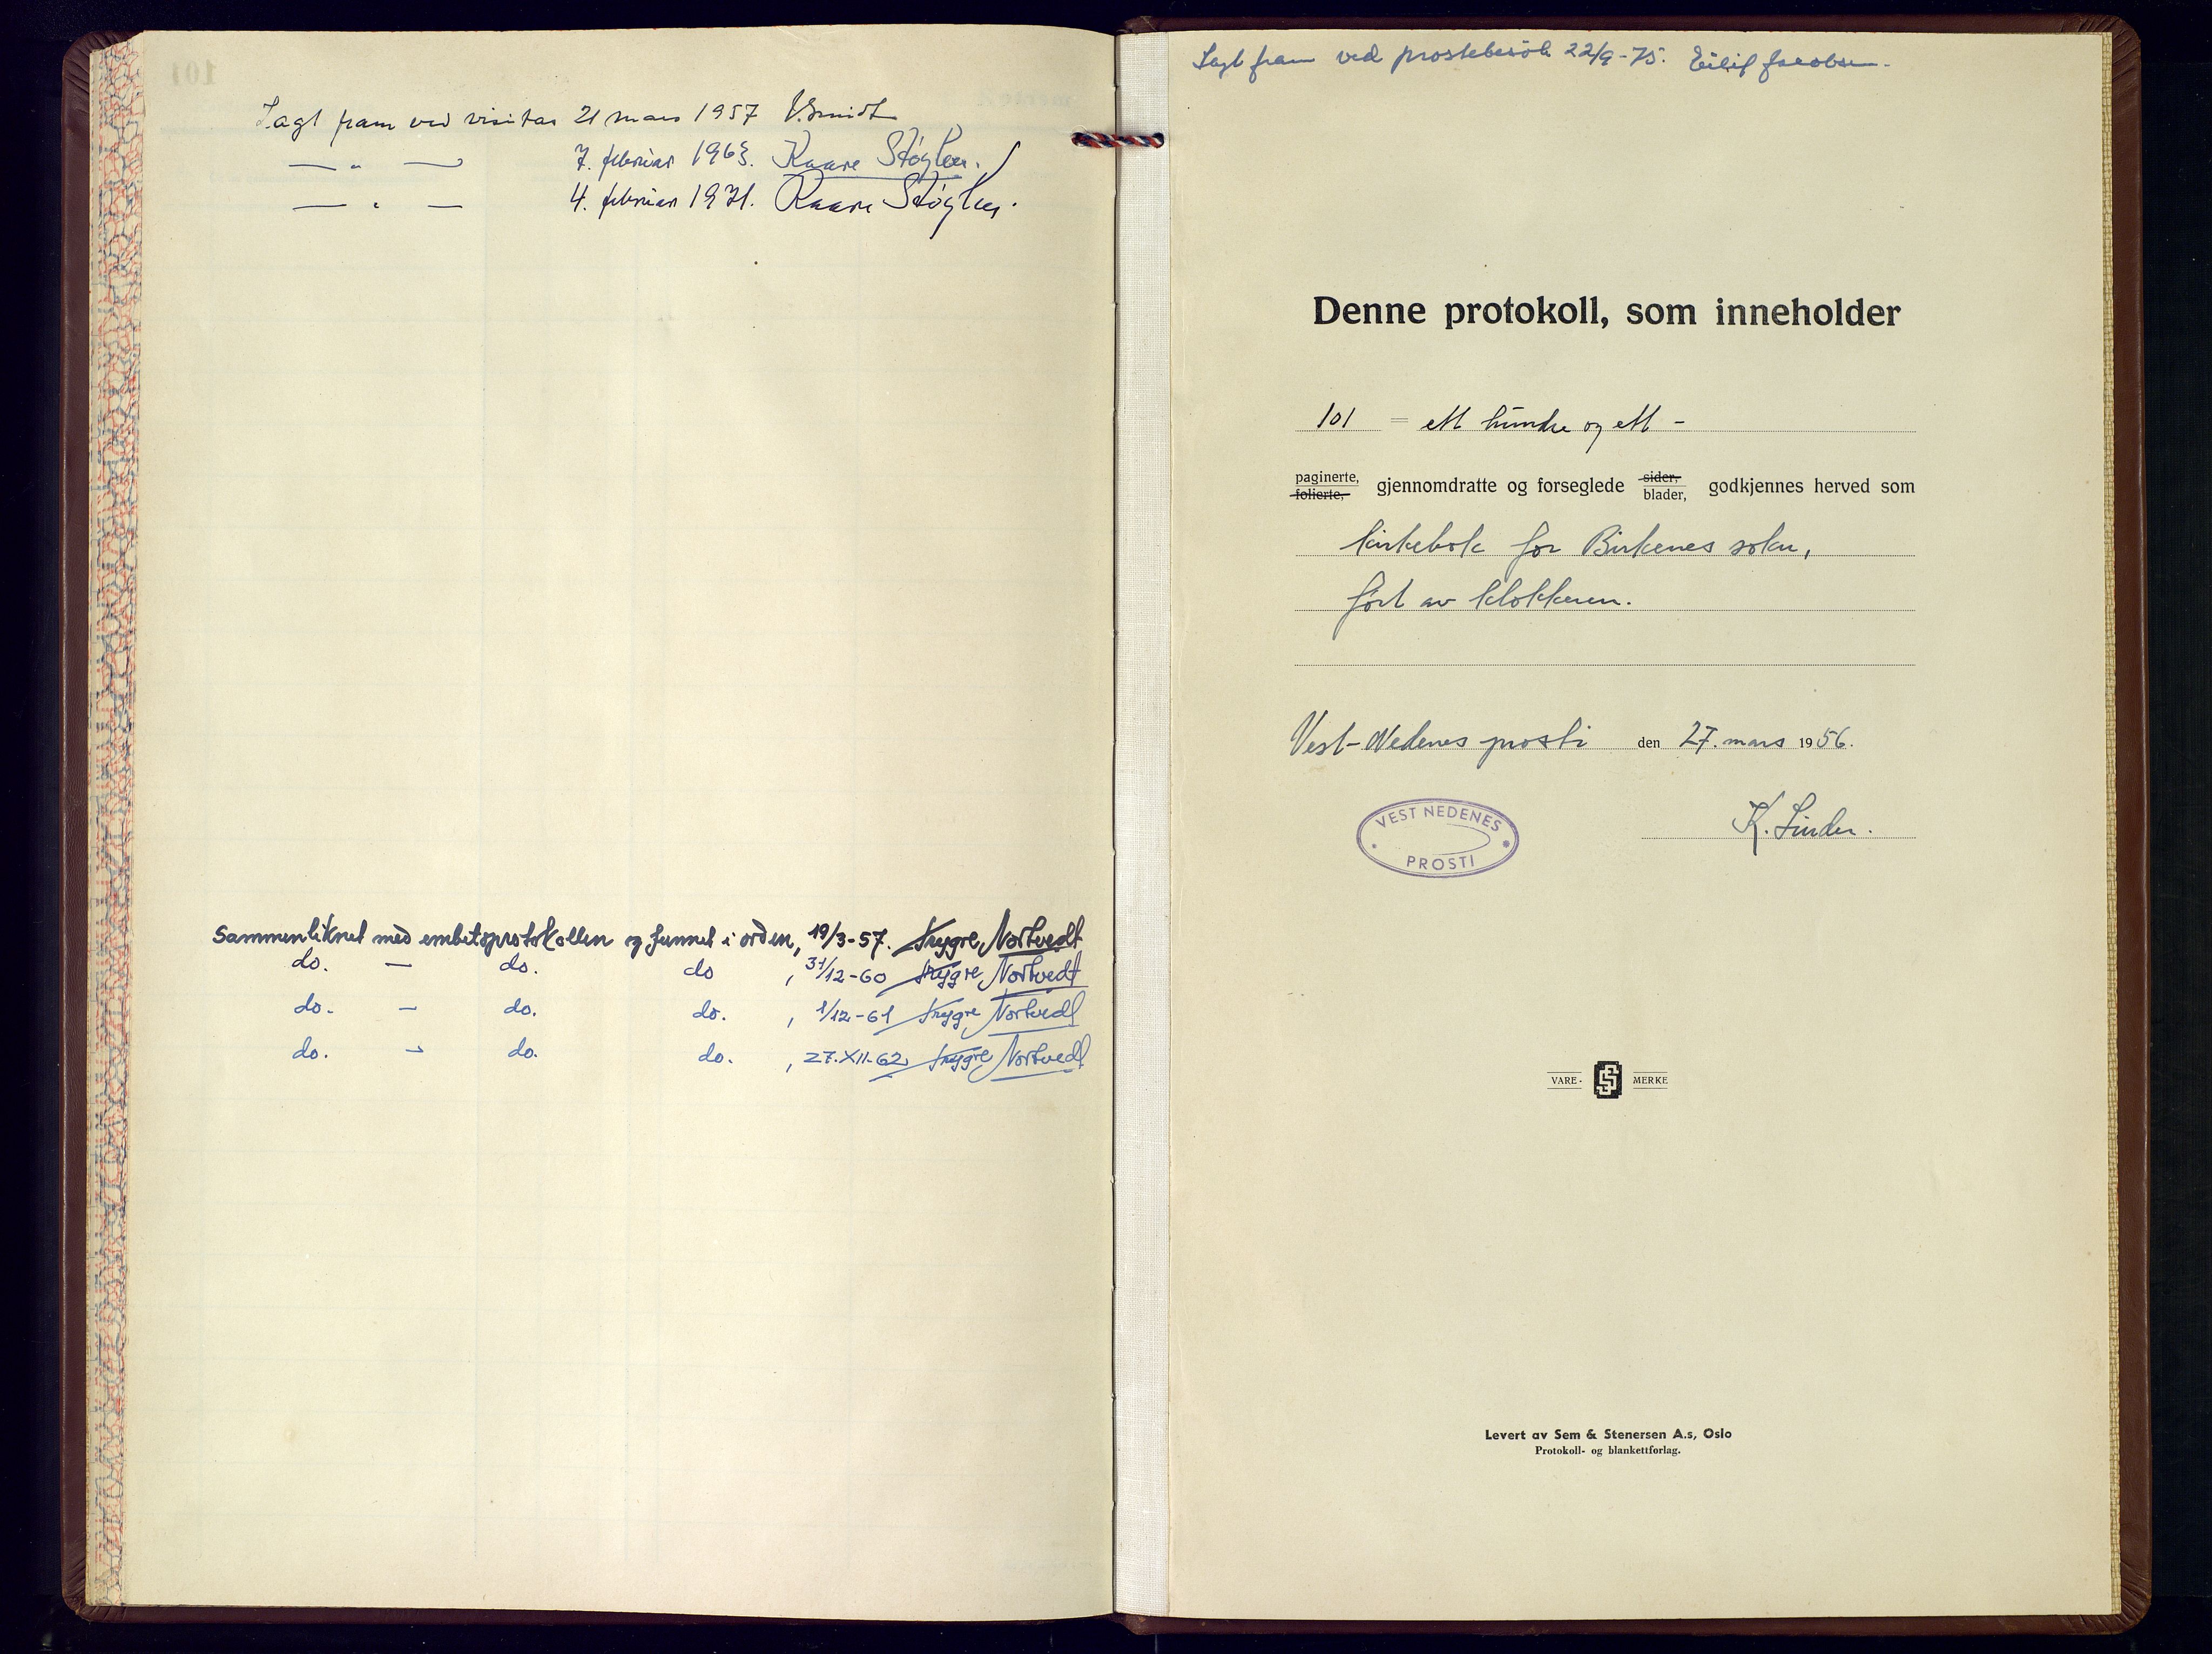 Lagt fram ved visitas 21 mars 1957 J. Smidt
— " — 7. februar 1963. Kaare Støylen.
— " — 4. februar 1971. Kaare Støylen.
Sammenliknet med embetsprotokollen og funnet i orden, 19/3-57. Trygve Nortvedt
do. — do. do , 31/12-60 Trygve Nortvedt
do. — do. do. , 1/12-61 Trygve Nortvedt
do. — do. do. , 27.XII-62 Trygve Nortvedt
Lagt fram ved prostebesök 22/9-75. Eilif Jacobsen.
Denne protokoll, som inneholder
101 = ett hundre og ett -
paginerte, folierte, gjennomdratte og forseglede sider, blader, godkjennes herved som
kirkebok for Birkenes sokn,
ført av klokkeren.
Vest-Nedenes prosti den 27. mars 1956.
VEST NEDENES
PROSTI
K. Linder.
VARE- SS MERKE
Levert av Sem & Stenersen A.s, Oslo
Protokoll- og blankettforlag.